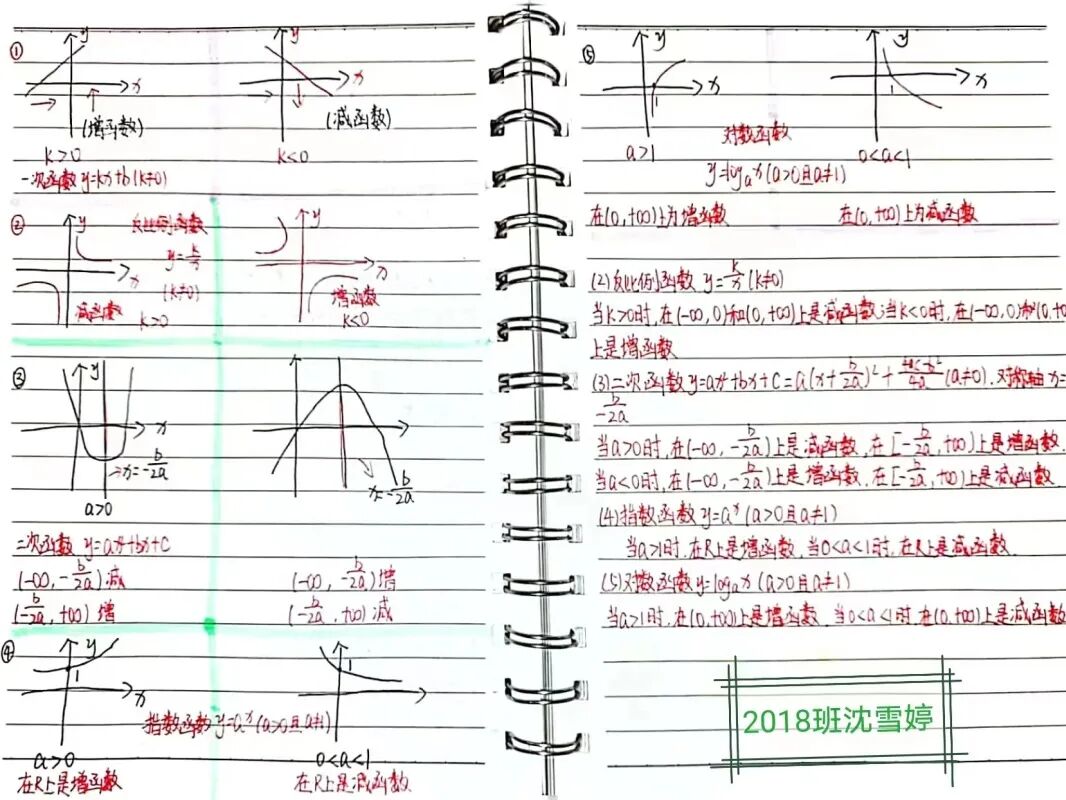 ①
y
x
(增函数)
k>0
y
x
(减函数)
k<0
一次函数 y=kx+b(k≠0)
②
y
x
反比例函数
y=k/x
(k≠0)
减函数
k>0
y
x
增函数
k<0
③
y
x
x=-b/2a
a>0
x=-b/2a
二次函数 y=ax²+bx+c
(-∞,-b/2a)减
(-∞,-b/2a)增
(-b/2a,+∞)增
(-b/2a,+∞)减
④
y
1
x
1
指数函数 y=aˣ(a>0且a≠1)
a>0
0<a<1
在R上是增函数
在R上是减函数
⑤
y
x
1
a>1
y
x
1
0<a<1
对数函数
y=logₐx(a>0且a≠1)
在(0,+∞)上为增函数
在(0,+∞)上为减函数
(2)反比例函数 y=k/x(k≠0)
当k>0时,在(-∞,0)和(0,+∞)上是减函数;当k<0时,在(-∞,0)和(0,+∞
上是增函数
(3)二次函数 y=ax²+bx+c=a(x+b/2a)²+4ac-b²/4a(a≠0).对称轴x=
-b/2a
当a>0时,在(-∞,-b/2a)上是减函数,在[-b/2a,+∞)上是增函数.
当a<0时,在(-∞,-b/2a)上是增函数,在[-b/2a,+∞)上是减函数
(4)指数函数 y=aˣ(a>0且a≠1)
当a>1时,在R上是增函数,当0<a<1时,在R上是减函数.
(5)对数函数y=logₐx(a>0且a≠1)
当a>1时,在(0,+∞)上是增函数,当0<a<1时,在(0,+∞)上是减函数
2018班沈雪婷